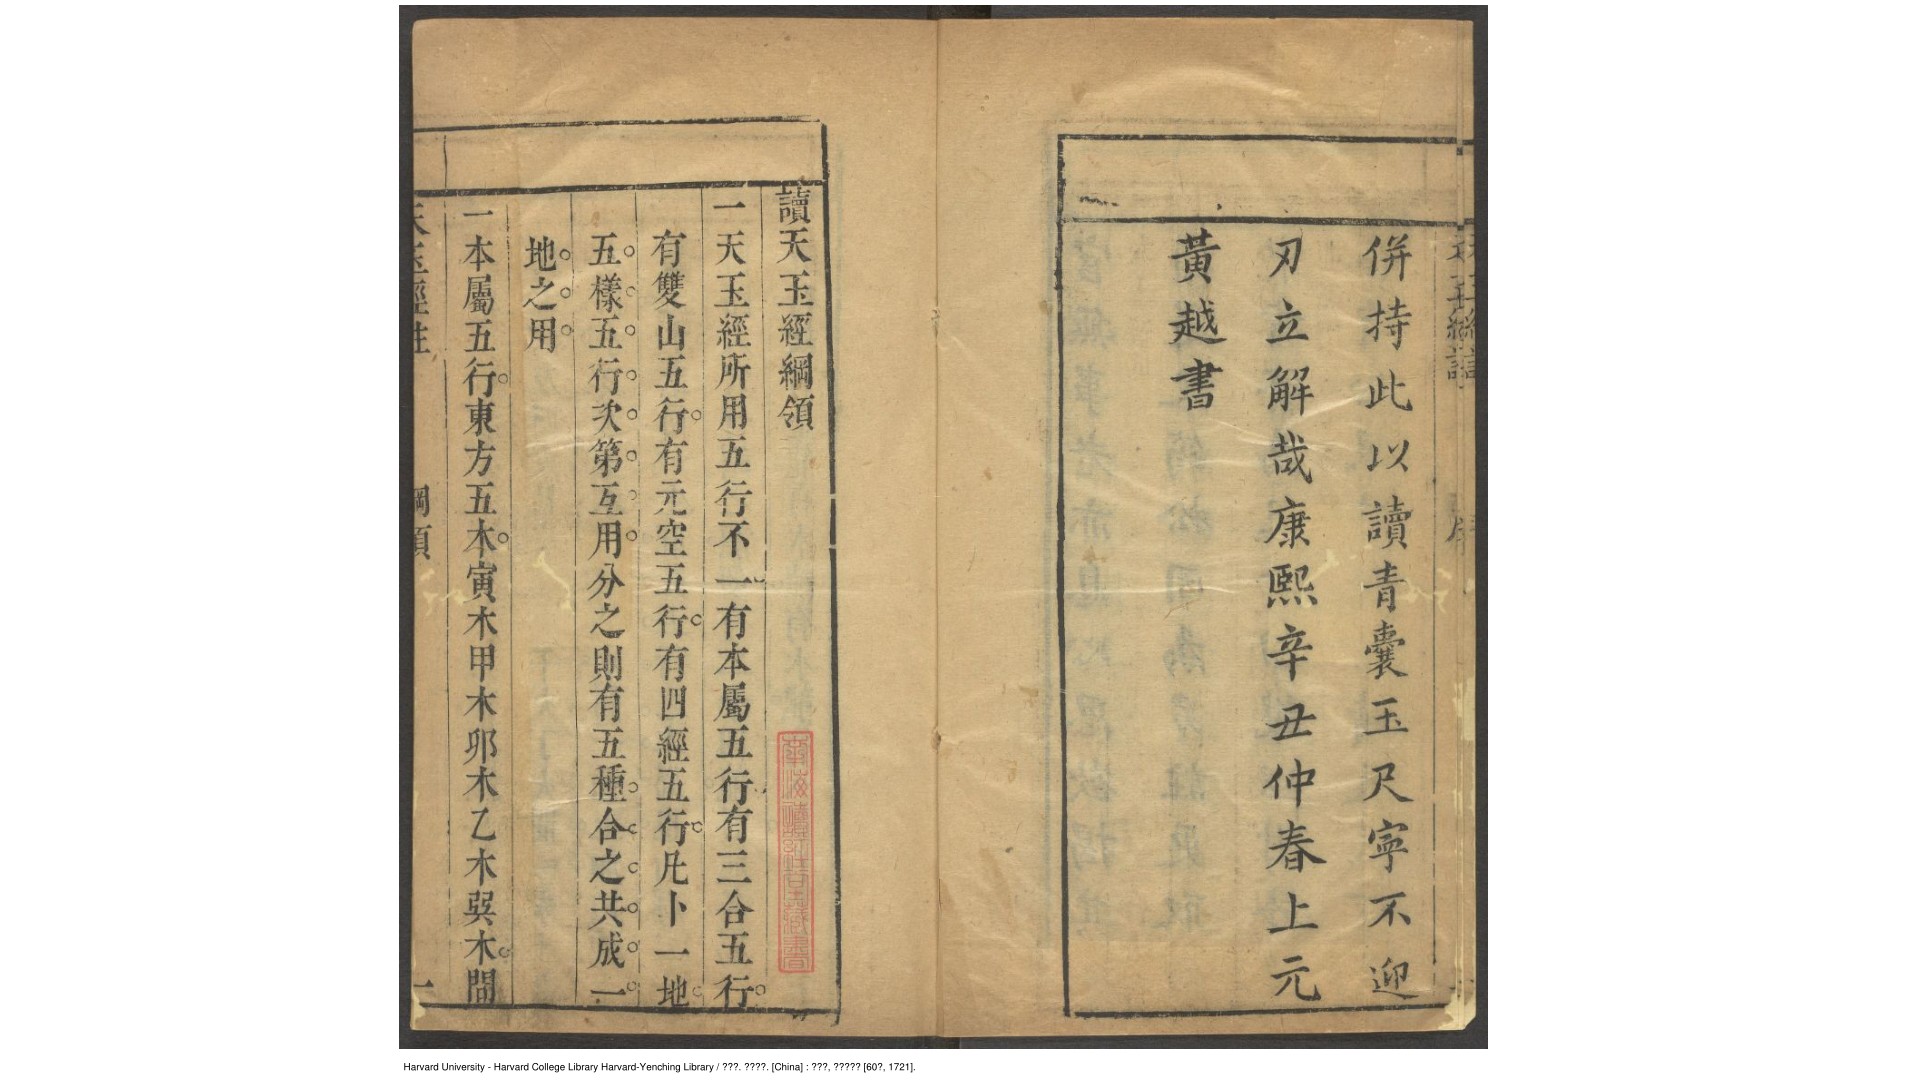 併持此以讀青囊玉尺寧不迎
刃立解哉康熙辛丑仲春上元
黃越書
讀天玉經綱領
一天玉經所用五行不一有本屬五行有三合五行
有雙山五行有元空五行有四經五行凡卜一地
五樣五行次第互用分之則有五種合之共成一
地之用
一本屬五行東方五木寅木甲木卯木乙木巽木間
天玉經註
綱領
一
Harvard University - Harvard College Library Harvard-Yenching Library / ???. ????. [China] : ???, ????? [60?, 1721].